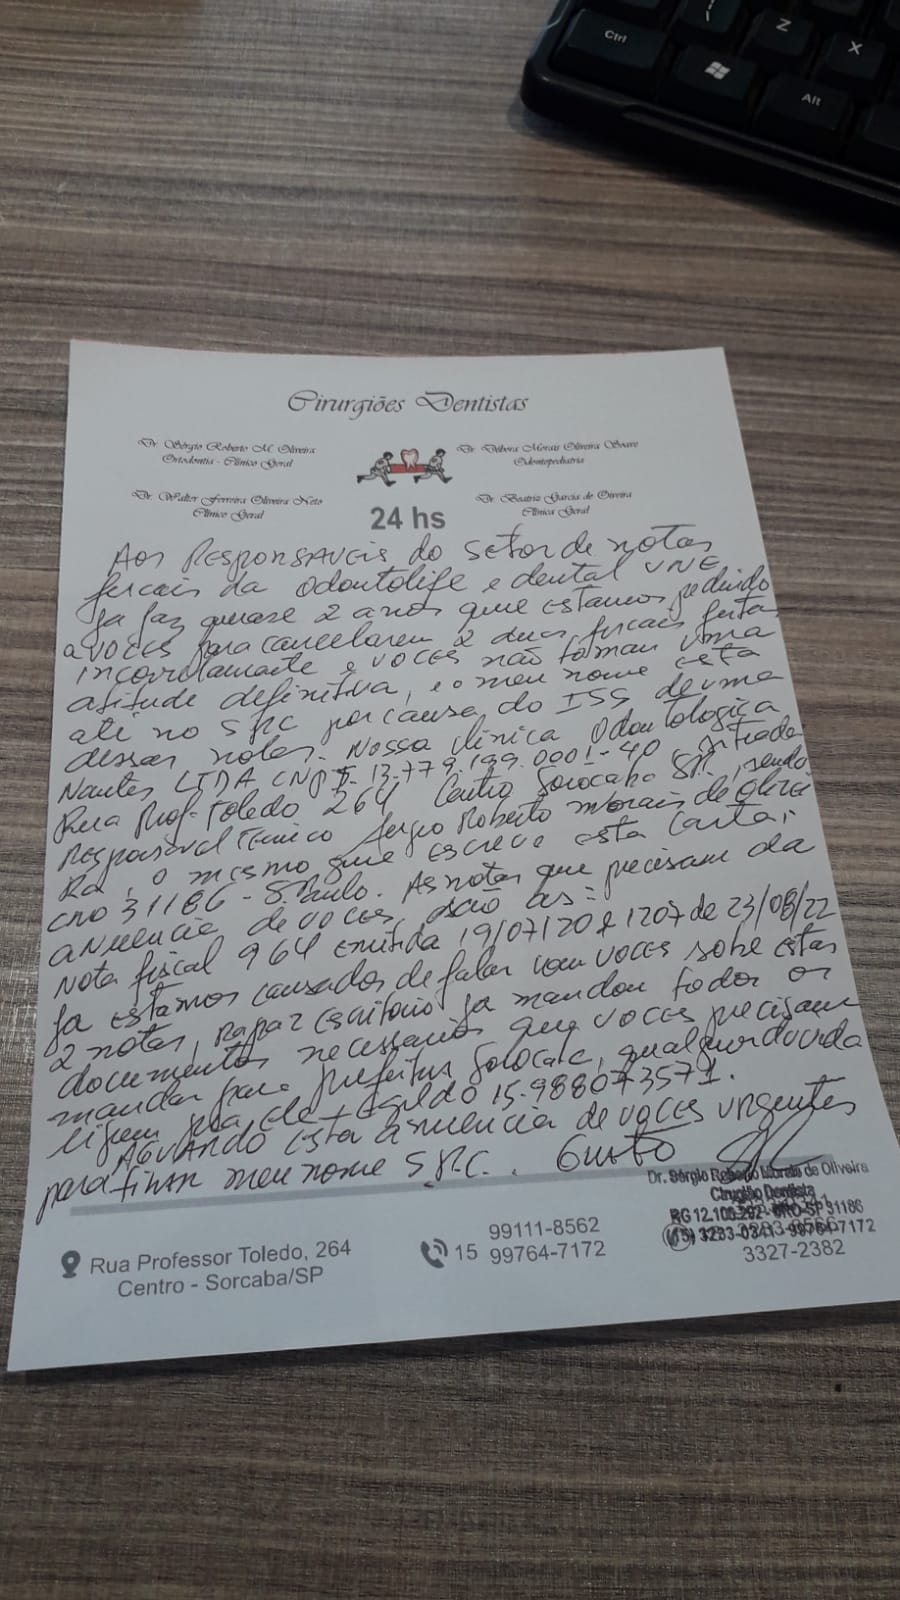 Ctrl
Z
X
Alt
Cirurgiões Dentistas
Dr. Sérgio Roberto M. Oliveira
Ortodontia - Clínico Geral
Dr. Débora Morais Oliveira Soave
Odontopediatria
Dr. Walter Ferreira Oliveira Neto
Clínico Geral
Dr. Beatriz Garcia de Oliveira
Clínica Geral
24 hs
Aos RESPONSAVEIS do setor de notas
fiscais da odontolife e dental UNE
Ja faz quase 2 anos que estamos pedindo
a voces para cancelarem 2 duas fiscais feitas
incorretamente e voces não tomam uma
atitude definitiva, e o meu nome esta
ate no SPC por causa do ISS de uma
dessas notas. Nossa clinica Odontologica
Nantes LTDA CNPJ. 13.779.199.0001-40
Rua Prof. Toledo 264 Centro Sorocaba SP, sendo
Responsavel Tecnico Sergio Roberto Morais de Olivei
Ra, o mesmo que escreve esta carta,
CRO 31186 - S. Paulo. As notas que precisam da
anuencia de voces, são as:
Nota fiscal 964 emitida 19/07/20 e 1207 de 23/08/22
Ja estamos cansados de falar com voces sobre estas
2 notas, escritorio ja mandou todos os
documentos necessarios que voces precisam
mandar para prefeitura Sorocaba, qualquer duvida
ligem 15-988073571.
AGUARDO esta anuencia de voces urgentes
para meu nome S.P.C. Grato
Dr. Sérgio Roberto Morais de Oliveira
Cirurgião Dentista
RG 12.100.292 - CRO-SP 31186
99764-7172
Rua Professor Toledo, 264
Centro - Sorcaba/SP
15 99111-8562
99764-7172
3327-2382